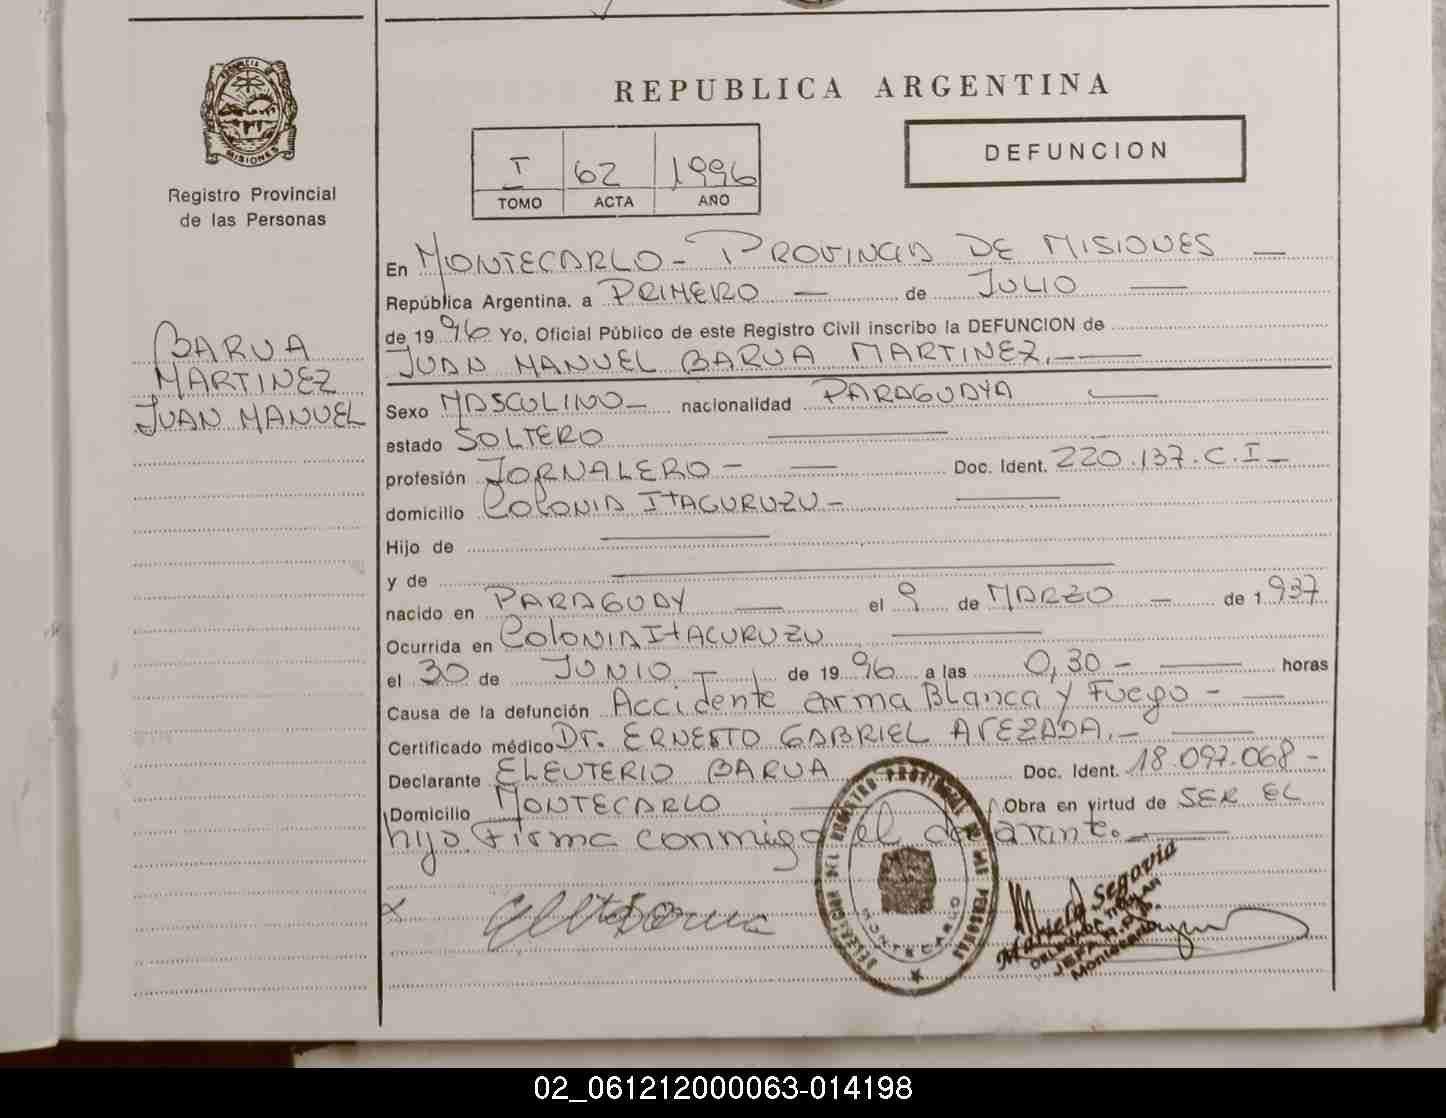 PROVINCIA DE
MISIONES
Registro Provincial
de las Personas
BARUA
MARTINEZ
JUAN MANUEL
REPUBLICA ARGENTINA
I 62 1996
TOMO ACTA AÑO
DEFUNCION
En MONTECARLO - PROVINCIA DE MISIONES —
República Argentina. a PRIMERO — de JULIO —
de 1996 Yo, Oficial Público de este Registro Civil inscribo la DEFUNCION de
JUAN MANUEL BARUA MARTINEZ. —
Sexo MASCULINO - nacionalidad PARAGUAYA —
estado SOLTERO —
profesión JORNALERO - — Doc. Ident. 220.137.C.I -
domicilio COLONIA ITACURUZU - —
Hijo de —
y de —
nacido en PARAGUAY — el 9 de MARZO - de 1.937
Ocurrida en COLONIA ITACURUZU —
el 30 de JUNIO - de 1996 a las 0,30 - — horas
Causa de la defunción Accidente arma Blanca y Fuego - —
Certificado médico Dr. ERNESTO GABRIEL AREZADA. - —
Declarante ELEUTERIO BARUA Doc. Ident. 18.097.068 -
Domicilio MONTECARLO — Obra en virtud de SER EL
hijo. Firma conmigo el declarante. —
DEL REGISTRO PROVINCIAL DE LAS PERSONAS
MONTECARLO
Segovia
DELEGADA TITULAR
JEFA R.P.P.
Montecarlo
02_061212000063-014198